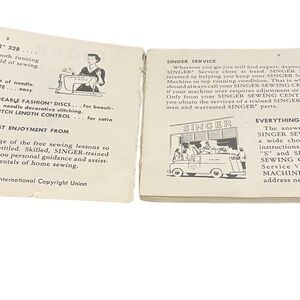 2
* 328 ....
th running
ld of sewing
of needle.
ATE .... easy
EABLE FASHION* DISCS ... for beauti-
needle decorative stitching.
TCH LENGTH CONTROL ... for satin
ST ENJOYMENT FROM
ge of the free sewing lessons to
titled. Skilled, SINGER-trained
ou personal guidance and assist-
entals of home sewing.
nternational Copyright Union
3
SINGER SERVICE
Wherever you go you will find expert, depen
SINGER* Service close at hand. SINGER
terested in helping you keep your SINGER S
Machine in top running condition. That is wh
should always call your SINGER SEWING CENT
if your machine ever requires adjustment or
Only from your SINGER SEWING CENTE
you obtain the services of a trained SINGER
and warranted SINGER* parts.
SINGER
EVERYTHING
SINGER SEW
a wide choi
instructions
"S" and SE
SEWING C
Service Y
MACHIN
address ne